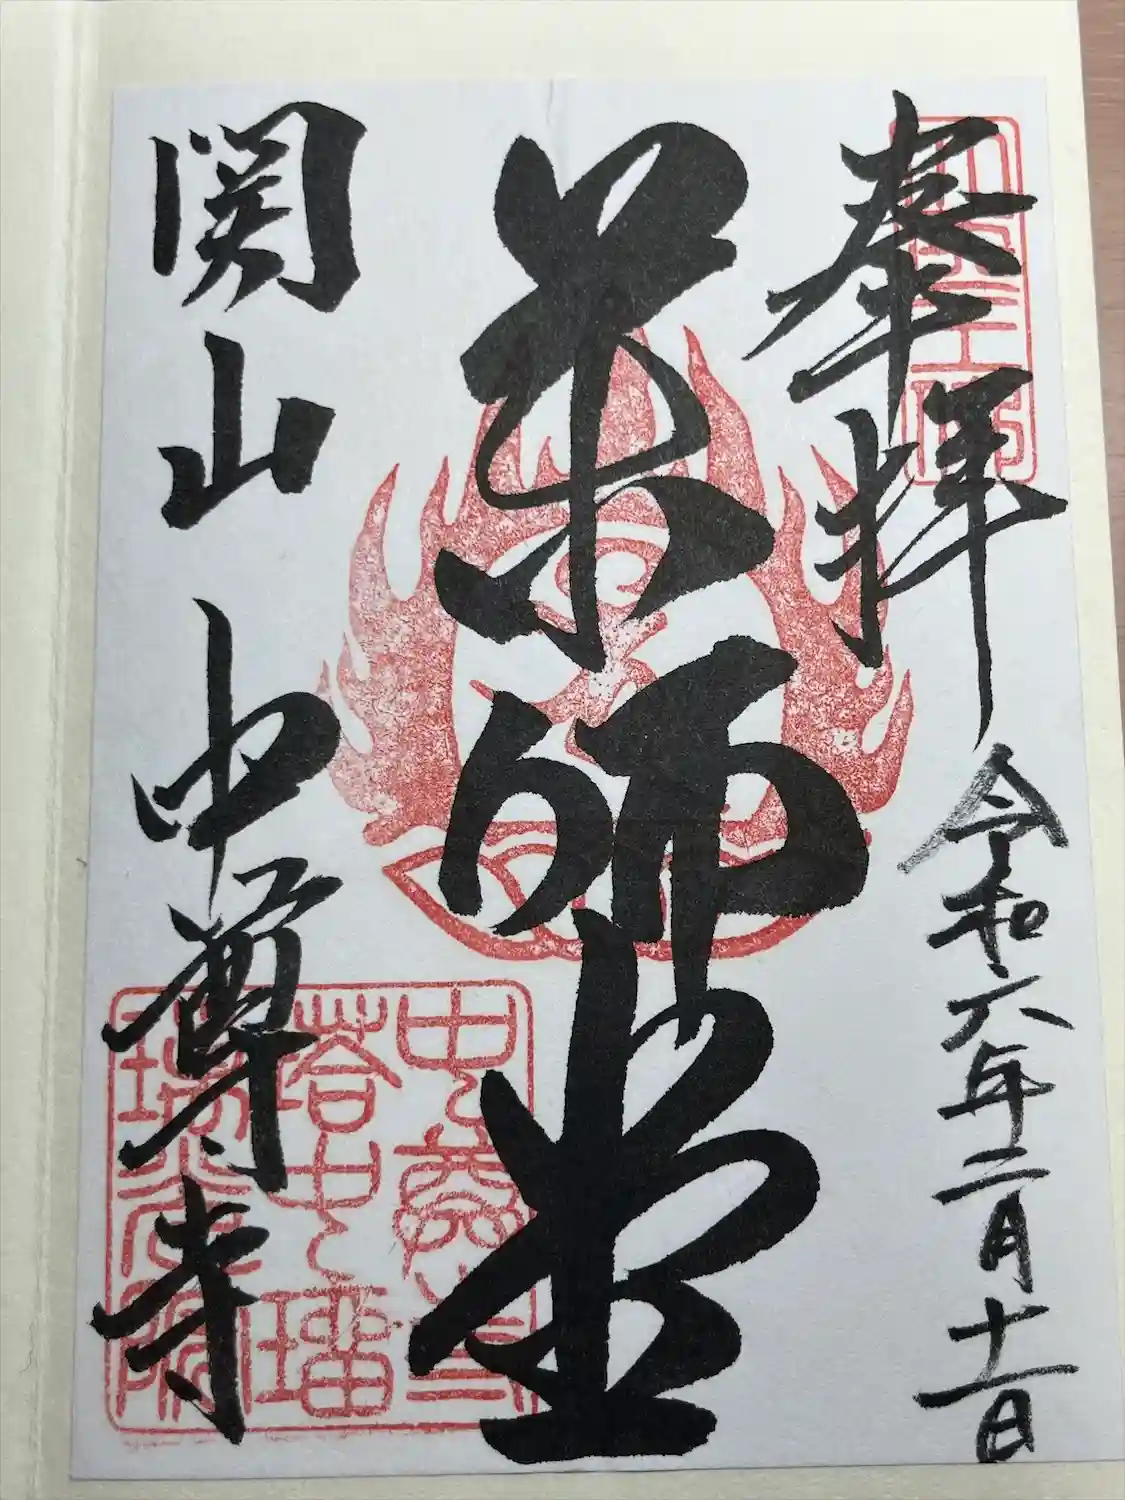 奉拝
令和六年二月十一日
薬師堂
関山
中尊寺